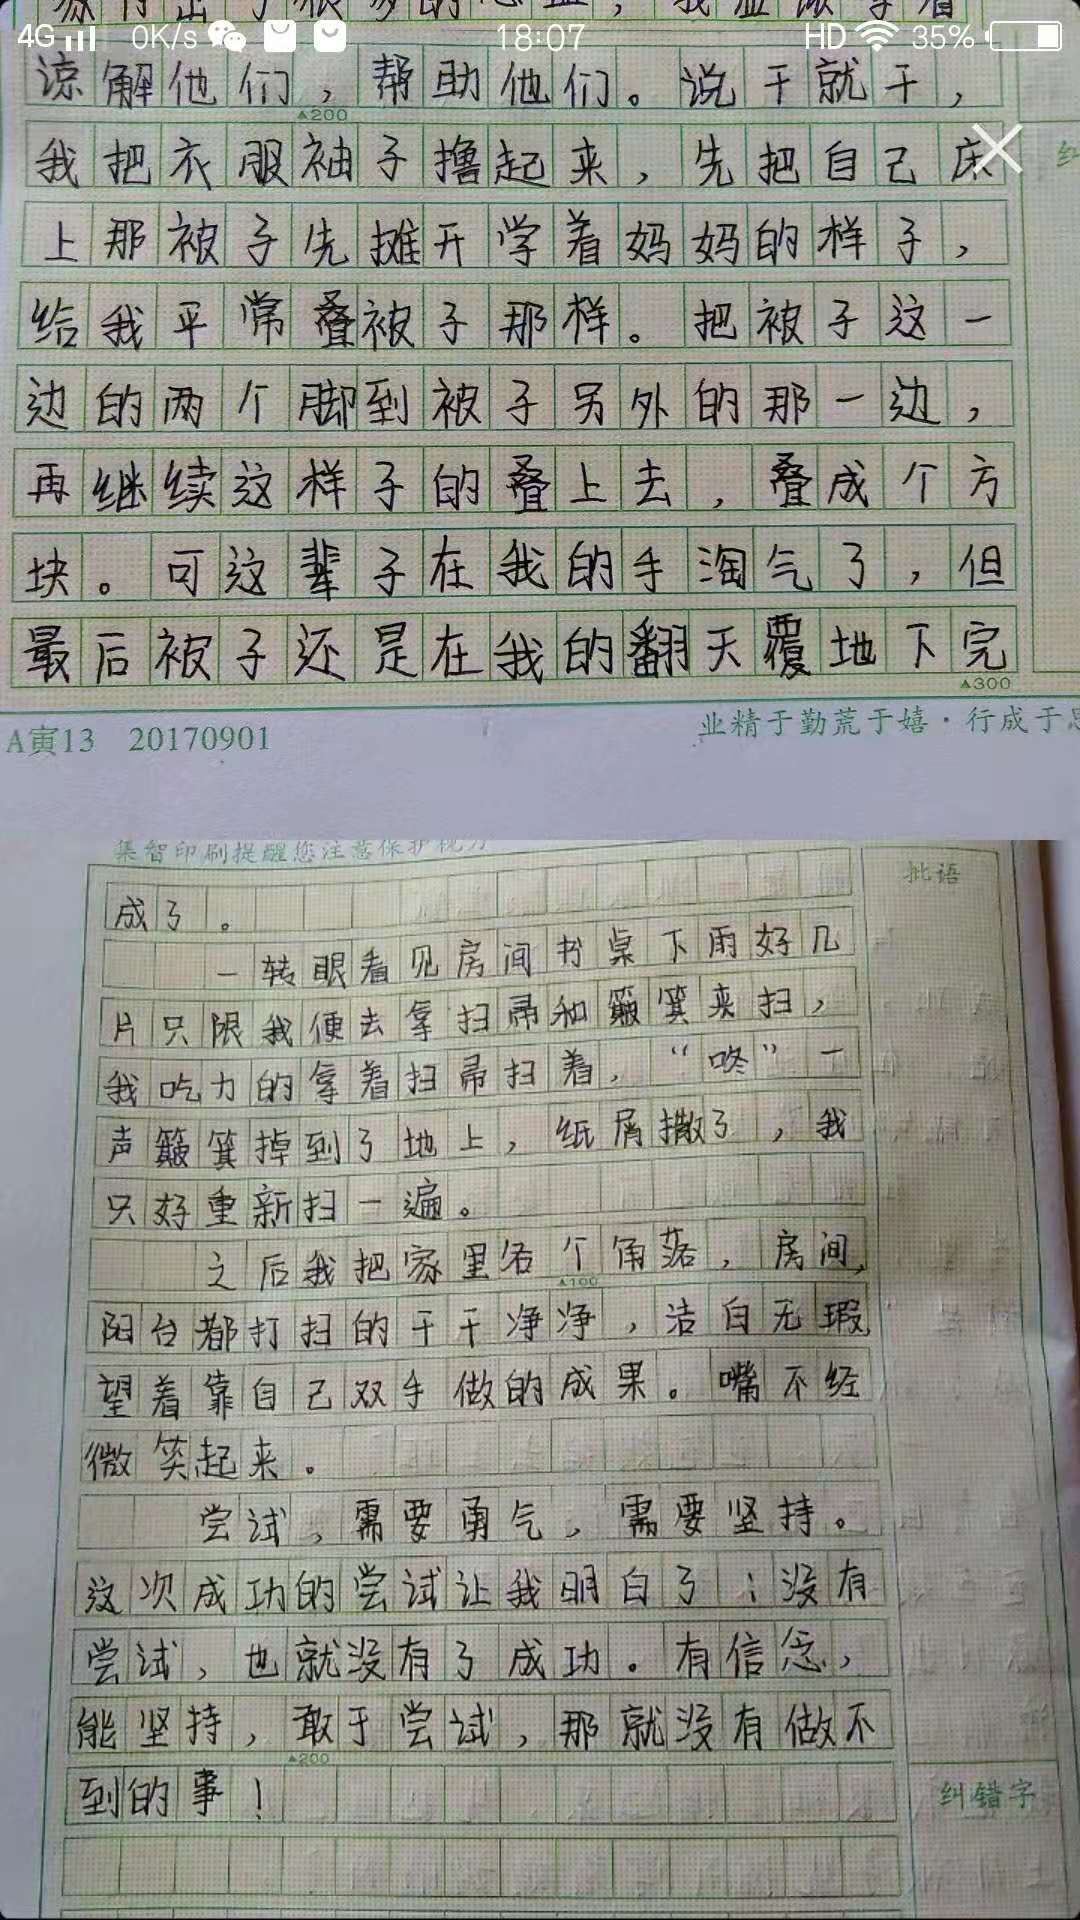 4G 0K/s 18:07 HD 35%
谅解他们，帮助他们。说干就干，
▲200
我把衣服袖子撸起来，先把自己床
上那被子先摊开学着妈妈的样子，
给我平常叠被子那样。把被子这一
边的两个脚到被子另外的那一边，
再继续这样子的叠上去，叠成个方
块。可这辈子在我的手淘气了，但
最后被子还是在我的翻天覆地下完
▲300
A寅13 20170901
业精于勤荒于嬉·行成于思
集智印刷提醒您注意保护视力
批语
成了。
一转眼看见房间书桌下雨好几
片只限我便去拿扫帚和簸箕来扫，
我吃力的拿着扫帚扫着，“咚”一
声簸箕掉到了地上，纸屑撒了，我
只好重新扫一遍。
之后我把家里各个角落，房间，
▲100
阳台都打扫的干干净净，洁白无瑕，
望着靠自己双手做的成果。嘴不经
微笑起来。
尝试，需要勇气，需要坚持。
这次成功的尝试让我明白了：没有
尝试，也就没有了成功。有信念，
能坚持，敢于尝试，那就没有做不
▲200
到的事！
纠错字